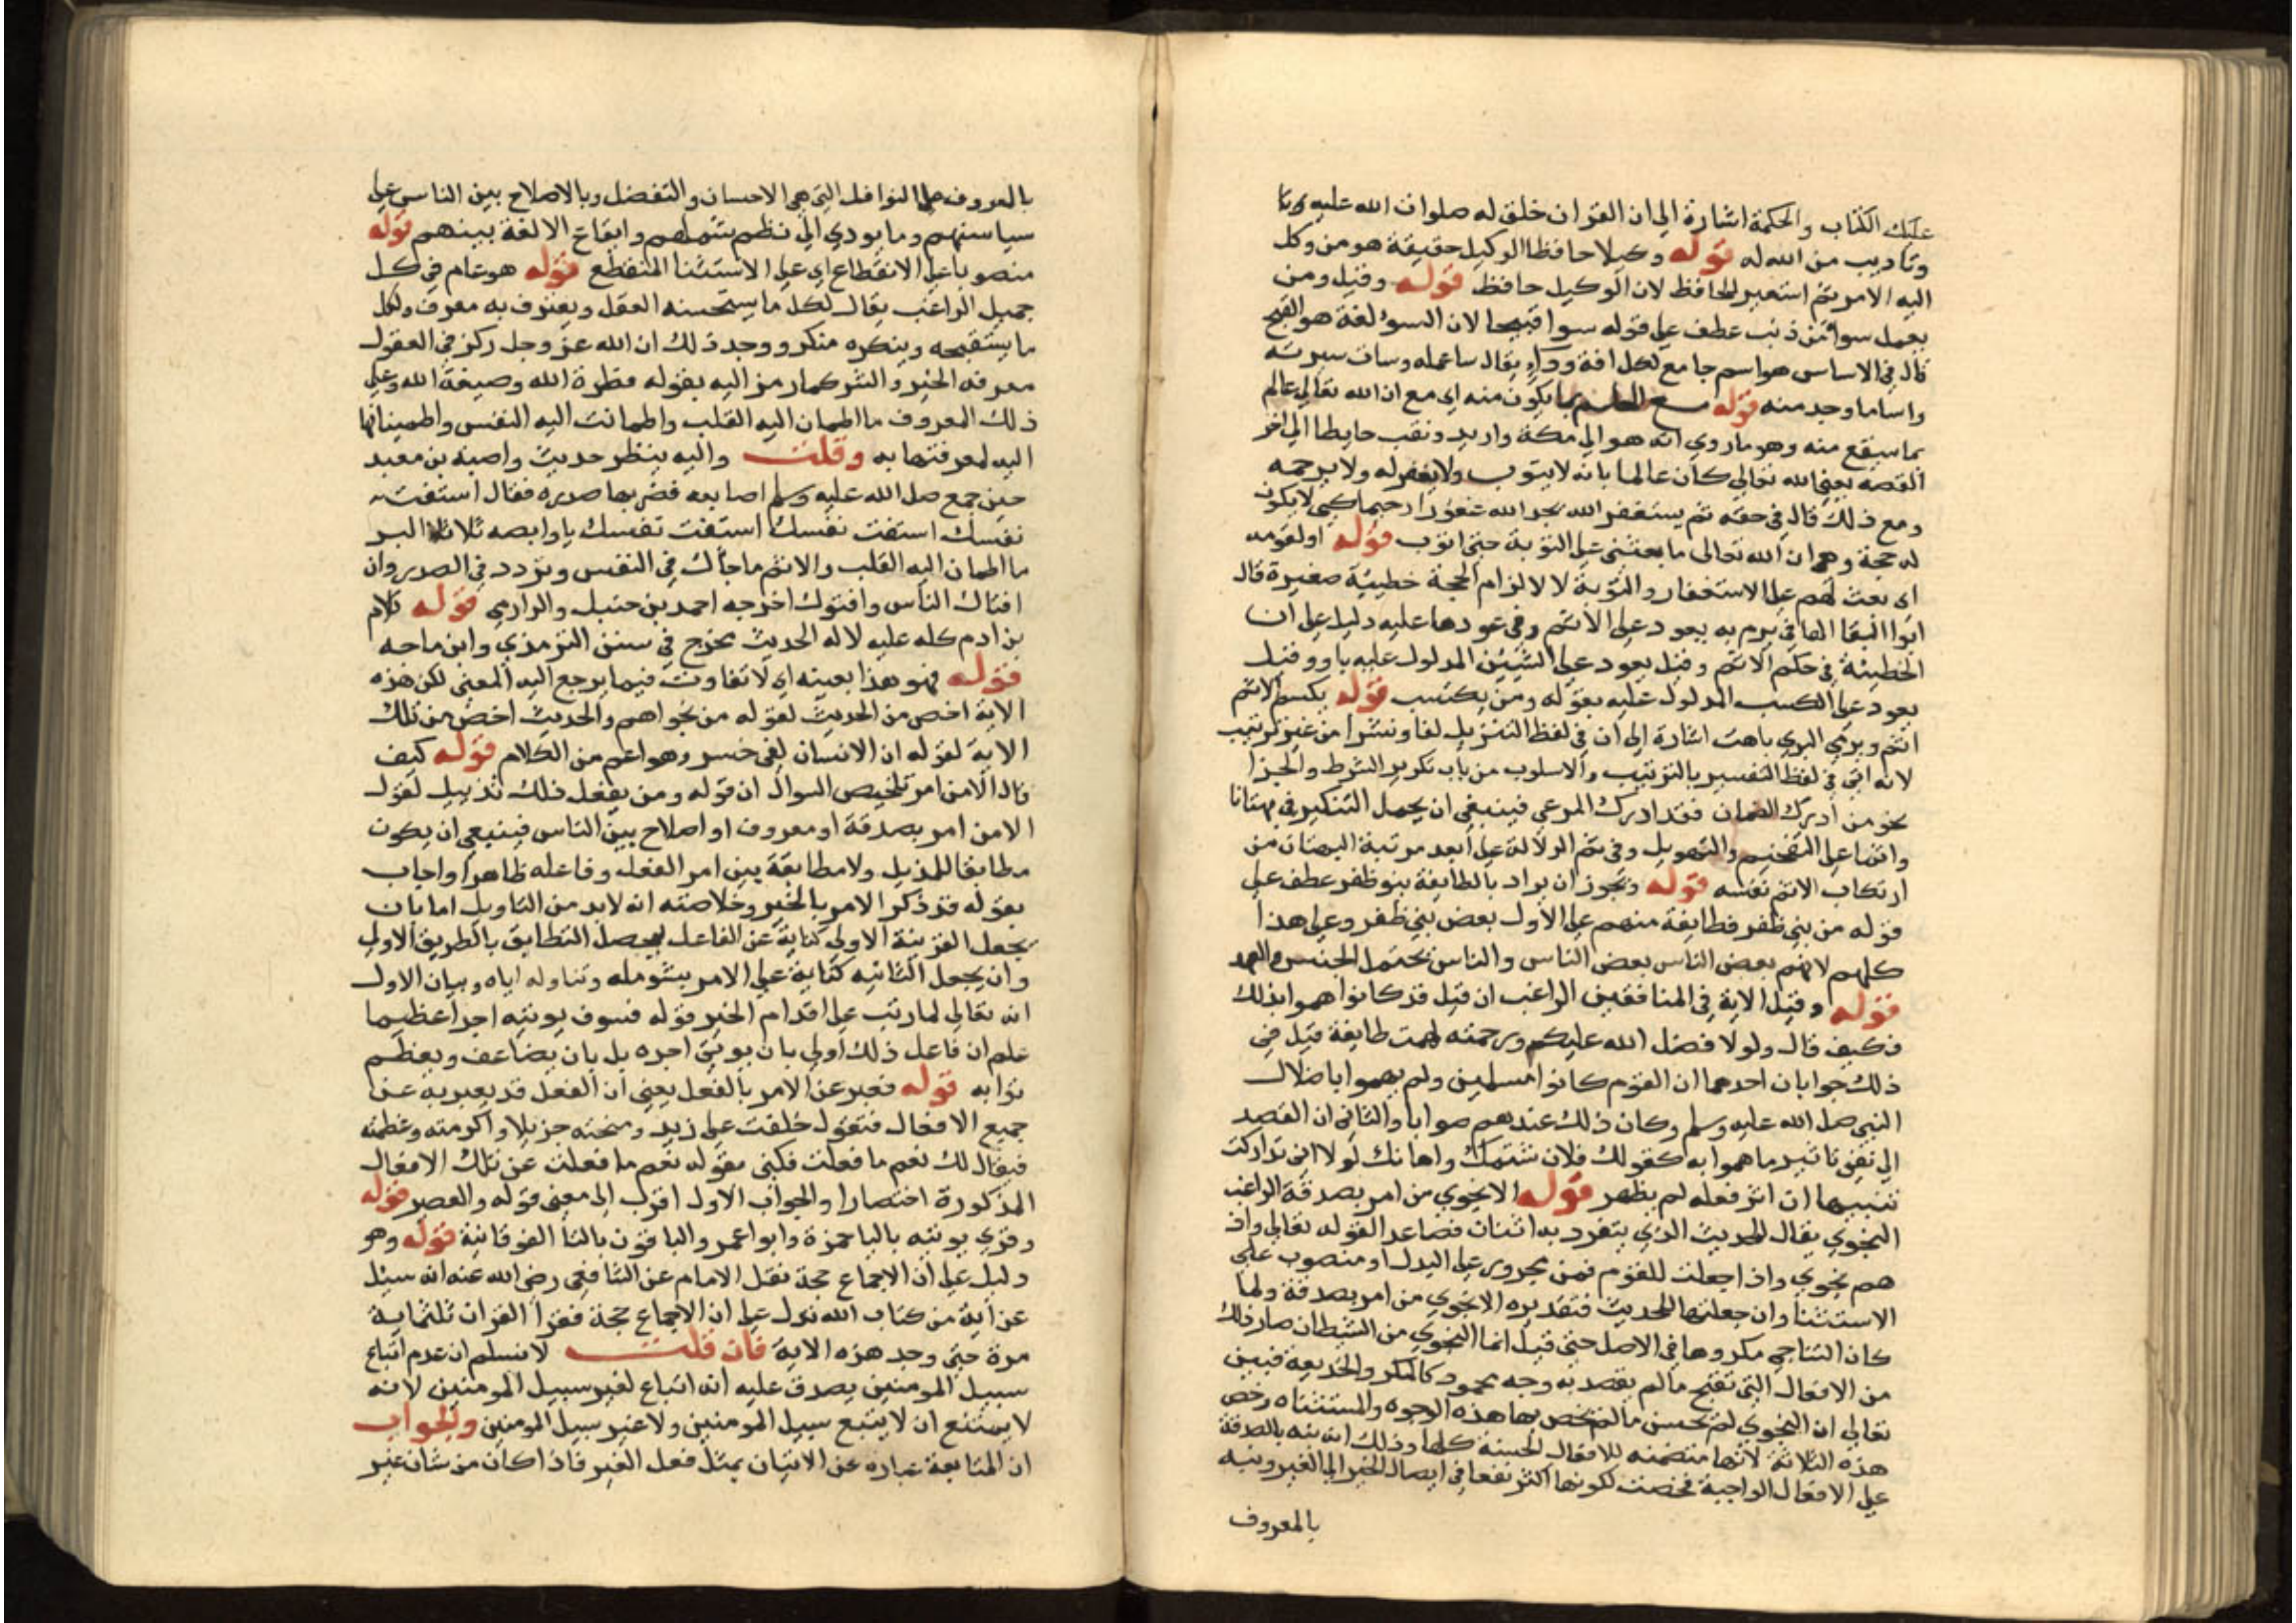 عليك الكتاب والحكمة اشارة الي ان القران خلق له صلوات الله عليه
وتاديب من الله له قوله وكيلا حافظا الوكيل حقيقة هو من وكل
اليه الامر ثم استعير للحافظ لان الوكيل حافظ قوله وقيل ومن
يعمل سوا من ذنب عطف علي قوله سوا قبيحا لان السوء لغة هو القبح
قال في الاساس هو اسم جامع لكل افة وداء يقال سا عمله وسات سيرته
واسا ما وجد منه قوله مع العلم بما يكون منه اي مع ان الله تعالي عالم
بما سيقع منه وهو ما روي انه هو الي مكة وارتد ونقب حايطا الي اخر
القصه يعني الله تعالي كان عالما بانه لا يتوب ولا يغفر له ولا يرحمه
ومع ذلك قال في حقه ثم يستغفر الله يجد الله غفورا رحيما كي لا يكون
له حجة وهو ان الله تعالى ما بعثني علي التوبة حتي اتوب قوله او لقومه
اي بعث لهم علي الاستغفار والتوبة لا لالزام الحجة خطيئة صغيرة قال
ابوا البقا الها في يرم به يعود علي الاثم وفي عودها عليه دليل علي ان
الخطيئة في حكم الاثم وقيل يعود علي الشيئين المدلول عليه باو وقيل
يعود علي الكسب المدلول عليه بقوله ومن يكسب قوله بكسبه الاثم
اثم وبرمي البري باهت اشارة الي ان في لفظ التنزيل لفا ونشرا من غير ترتيب
لانه اتي في لفظ التفسير بالترتيب والاسلوب من باب تكرير الشرط والجزا
نحو من ادرك الضمان فقد ادرك المرعي فينبغي ان يحمل التنكير في بهتانا
واثما علي التفخيم والتهويل وفي ثم الدلالة علي ابعد مرتبة البهتان من
ارتكاب الاثم نفسه قوله ويجوز ان يراد بالطايفة بنو ظفر عطف علي
قوله من بني ظفر فطايفة منهم علي الاول بعض بني ظفر وعلي هذا
كلهم لانهم بعض الناس بعض الناس والناس يحتمل الجنس والعهد
قوله وقيل الاية في المنافقين الراغب ان قيل قد كانوا هموا بذلك
فكيف قال ولولا فضل الله عليكم ورحمته لهمت طايفة قيل في
ذلك جوابان احدهما ان القوم كانوا مسلمين ولم يهموا باضلال
النبي صل الله عليه وسلم وكان ذلك عندهم صوابا والثاني ان القصد
الي نفي تاثير ما هموا به كقولك فلان شتمك واهانك لولا اني تداركت
تنبيها ان اثر فعله لم يظهر قوله الا نجوي من امر بصدقة الراغب
النجوي يقال للحديث الذي يتفرد به اثنان فصاعدا لقوله تعالي واذ
هم نجوي واذا جعلت للقوم فمن مجرور علي البدل او منصوب علي
الاستثنا وان جعلتها للحديث فتقديره الا نجوي من امر بصدقة ولما
كان التناجي مكروها في الاصل حتي قيل انما النجوي من الشيطان صار ذلك
من الافعال التي تقبح ما لم يقصد به وجه محمود كالمكر والخديعة فبين
تعالي ان النجوي لم تحسن ما لم يخص بها هذه الوجوه والمستثناه وخص
هذه الثلاثة لانها متضمنه للافعال الحسنة كلها وذلك انه نبه بالصدقة
علي الافعال الواجبة فخصت لكونها اكثر نفعا في ايصال الخير الي الغير ونبه
بالمعروف
بالمعروف علي النوافل التي هي الاحسان والتفضل وبالاصلاح بين الناس علي
سياستهم وما يودي الي نظم شملهم وايقاع الالفة بينهم قوله
منصوبا علي الانقطاع اي علي الاستثنا المنقطع قوله هو عام في كل
جميل الراغب يقال لكل ما يستحسنه العقل ويعترف به معروف ولكل
ما يستقبحه وينكره منكر ووجد ذلك ان الله عز وجل ركز في العقول
معرفة الخير والشر كما رمز اليه بقوله فطرة الله وصبغة الله وعلي
ذلك المعروف ما اطمان اليه القلب واطمانت اليه النفس واطمينانها
اليه لمعرفتها به وقلت واليه ينظر حديث وابصة بن معبد
حين جمع صل الله عليه وسلم اصابعه فضرب بها صدره فقال استفت
نفسك استفت نفسك استفت نفسك يا وابصه ثلاثا البر
ما اطمان اليه القلب والاثم ما حاك في النفس وتردد في الصدر وان
افتاك الناس وافتوك اخرجه احمد بن حنبل والدارمي قوله كلام
بن ادم كله عليه لا له الحديث مخرج في سنن الترمذي وابن ماجه
قوله فهو هذا بعينه اي لا تفاوت فيما يرجع اليه المعني لكن هذه
الاية اخص من الحديث لقوله من نجواهم والحديث اخص من تلك
الاية لقوله ان الانسان لفي خسر وهو اعم من الكلام قوله كيف
قال الا من امر تلخيص السوال ان قوله ومن يفعل ذلك تذييل لقوله
الا من امر بصدقة او معروف او اصلاح بين الناس فينبغي ان يكون
مطابقا للمذيل ولا مطابقة بين امر الفعل وفاعله ظاهرا واجاب
بقوله قد ذكر الامر بالخير وخلاصته انه لابد من التاويل اما بان
يجعل القرينة الاولي كناية عن الفاعل ليحصل التطابق بالطريق الاولي
وان يجعل الثانيه كناية علي الامر بشوملە وتناوله اياه وبيان الاول
انه تعالي لما رتب علي اقدام الخير قوله فسوف يوتيه اجرا عظيما
علم ان فاعل ذلك اولي بان يوتي اجره بل بان يضاعف ويعظم
ثوابه قوله فعبر عن الامر بالفعل يعني ان الفعل قد يعبر به عن
جميع الافعال فتقول خلقت علي زيد ومنحته جزيلا واكرمته وعظمته
فيقال لك نعم ما فعلت فكني بقوله نعم ما فعلت عن تلك الافعال
المذكورة اختصارا والجواب الاول اقرب الي معني قوله والعصر قوله
وقري يوتيه باليا حمزة وابوا عمر والباقون بالتا الفوقانية قوله وهو
دليل علي ان الاجماع حجة نقل الامام عن الشافعي رضي الله عنه انه سيل
عن اية من كتاب الله تدل علي ان الاجماع حجة فقرا القران ثلثماية
مرة حتي وجد هذه الاية فان قلت لا نسلم ان عدم اتباع
سبيل المومنين يصدق عليه انه اتباع لغير سبيل المومنين لانه
لا يمتنع ان لا يتبع سبيل المومنين ولا غير سبيل المومنين والجواب
ان المتابعة عباره عن الاتيان بمثل فعل الغير فاذا كان من شان غير